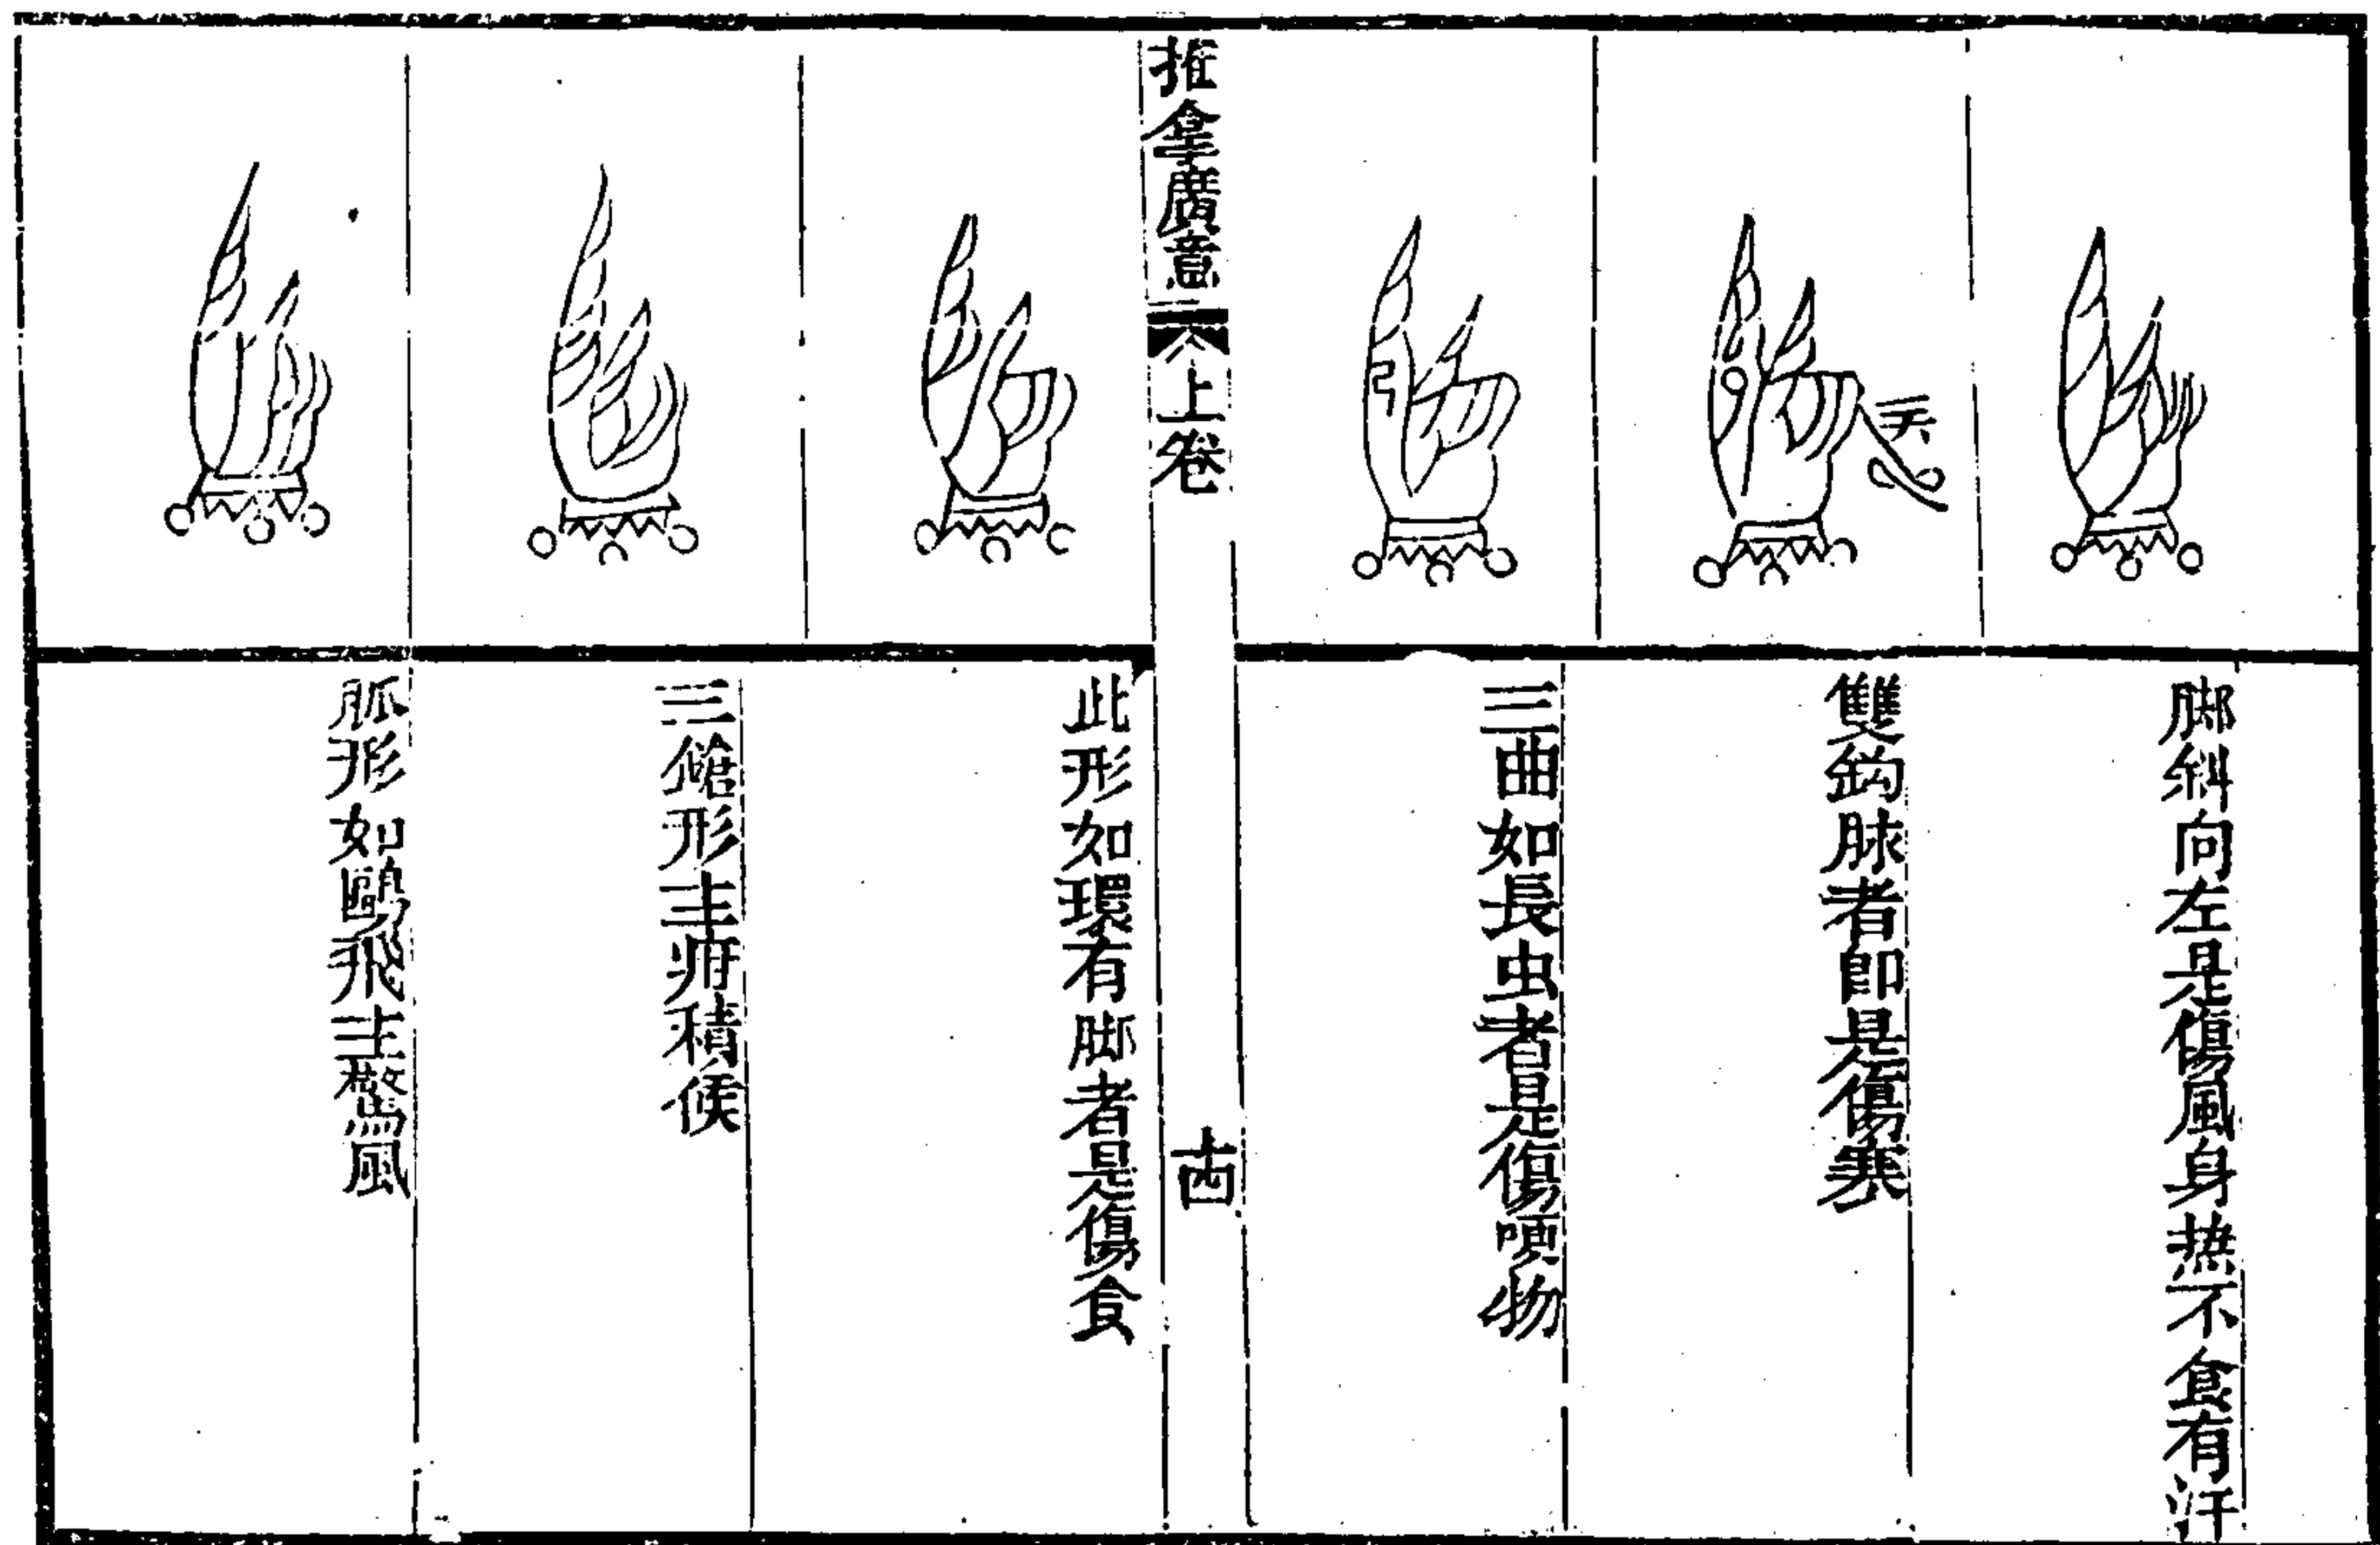 脚斜向左是傷風身热不食有汗
雙鈎脉者卽是傷寒
三曲如長虫者是傷硬物
推拿廣意
上卷
十四
此形如環有脚者是傷食
三鎗形主疳積候
脈形如鷗飛主驚風